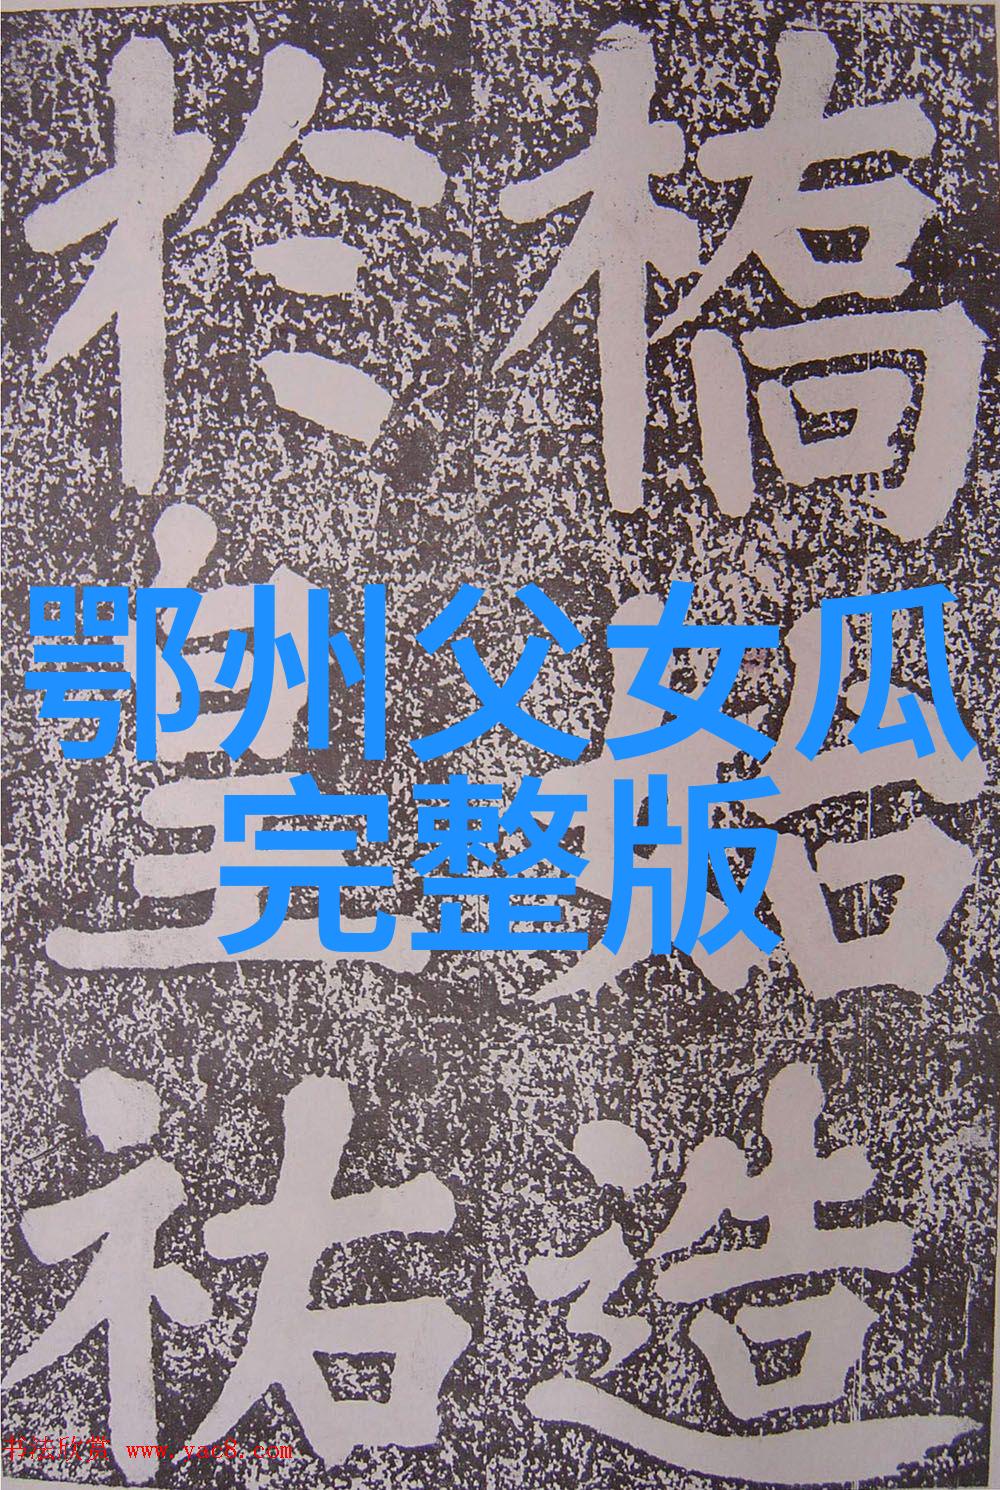 橋始造
於皇祐
鄂州父女瓜
完整版
书法欣赏 www.yac8.com